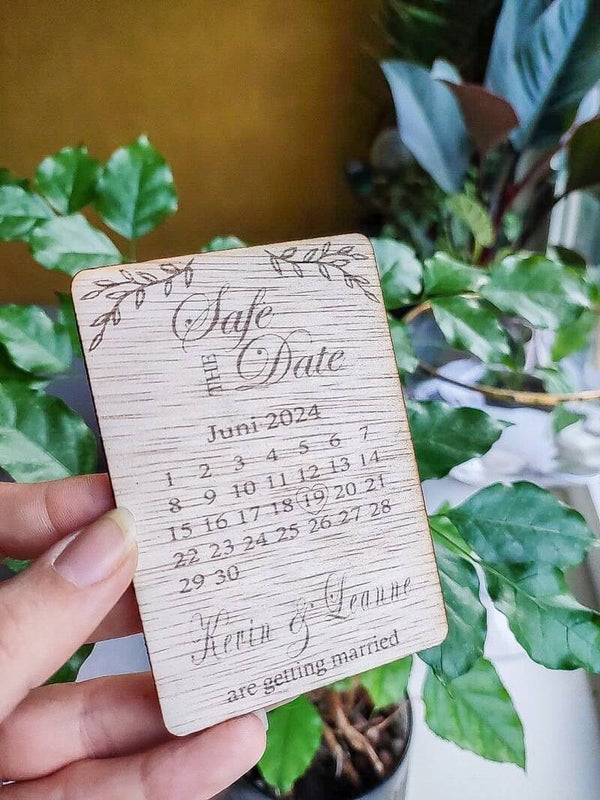 Safe
THE
Date
Juni 2024
1 2 3 4 5 6 7
8 9 10 11 12 13 14
15 16 17 18 19 20 21
22 23 24 25 26 27 28
29 30
Kevin & Leanne
are getting married